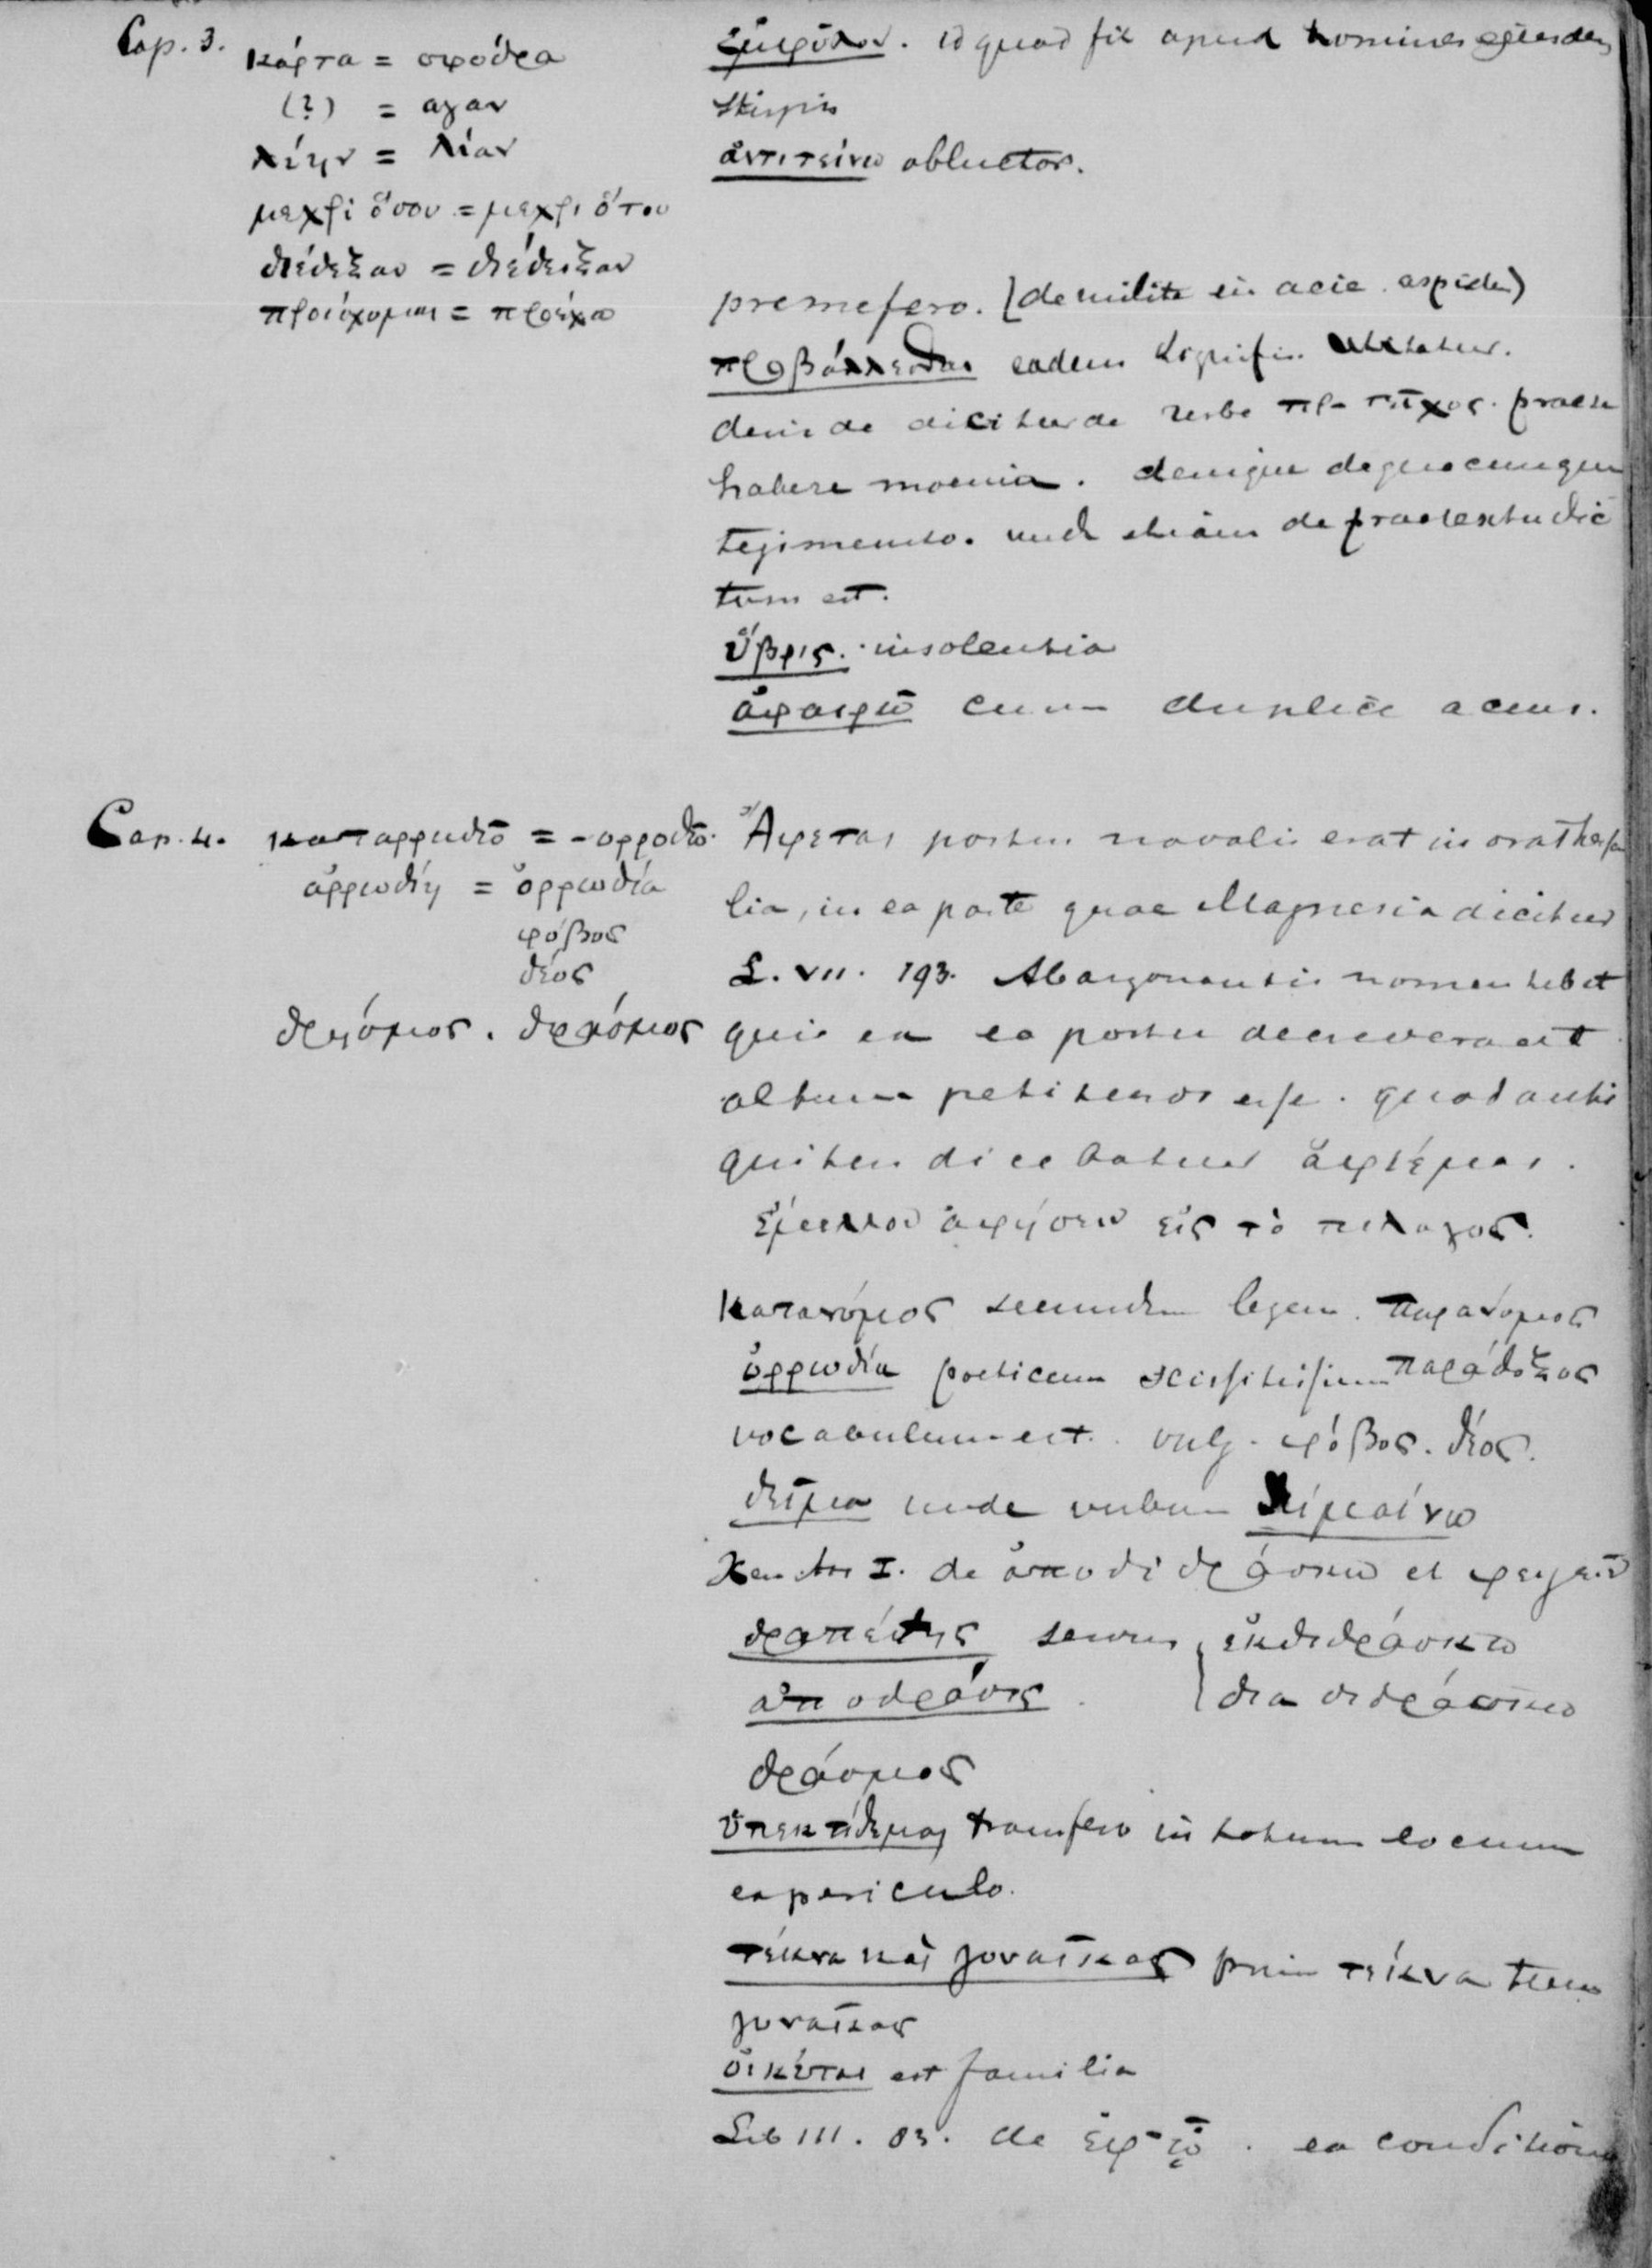 Cap. 3.
κάρτα = σφόδρα
(?) = αγαν
λίην = λίαν
μεχρι ὅσου = μεχρι ὅτου
διέδεξαν = διέδειξαν
προίσχομαι = προέχω
ἔμφυλον. id quod fit apud homines eiusdem
stirpis
ἀντιτείνω obluctor.
premefero. (de milite in acie aspide)
προβάλλεσθαι eadem signific. utitatur.
deinde dicitur de urbe πρ- τεῖχος. prae se
habere moenia. denique de quocumque
tegimento. unde etiam de praetextu dic
tum est.
ὕβρις. insolentia
ἀφαιρῶ cum duplici accus.
Cap. 4.
καταρρωδῶ = -ορρωδῶ.
ἀρρωδίη = ὀρρωδία
φόβος
δέος
δρησμος. δρασμος
Ἀφεται portus navalis erat in ora Thessa
lia, in ea parte quae Magnesia dicitur
L. VII. 193. Ab argonautis nomen hebet
quia ex eo portu decreverant
altum petituros esse. quod anti
quitus dicebatur ἀφιέμαι.
ἔμελλον ἀφήσειν εἰς τὸ πελαγος.
κατανόμος secundum legem. παρανομος
ὀρρωδία poeticum scissitissimum παράδοξος
vocabulum est. vulg. φόβος. δέος.
δεῖμα unde verbum δειμαίνω
Xen An I. de ἀποδιδράσκω et φευγειν
δραπέτης servus ἐκδιδράσκω
ἀποδρᾶσις διαδιδράσκω
δράσμος
ὑπεκτίθεμαι transfero in totum locum
ex periculo.
τέκνα καὶ γυναῖκας prim τέκνα tum
γυναῖκας
οἰκέται est familia
Lib III. 83. de ἐφ' ᾧ. ea conditione